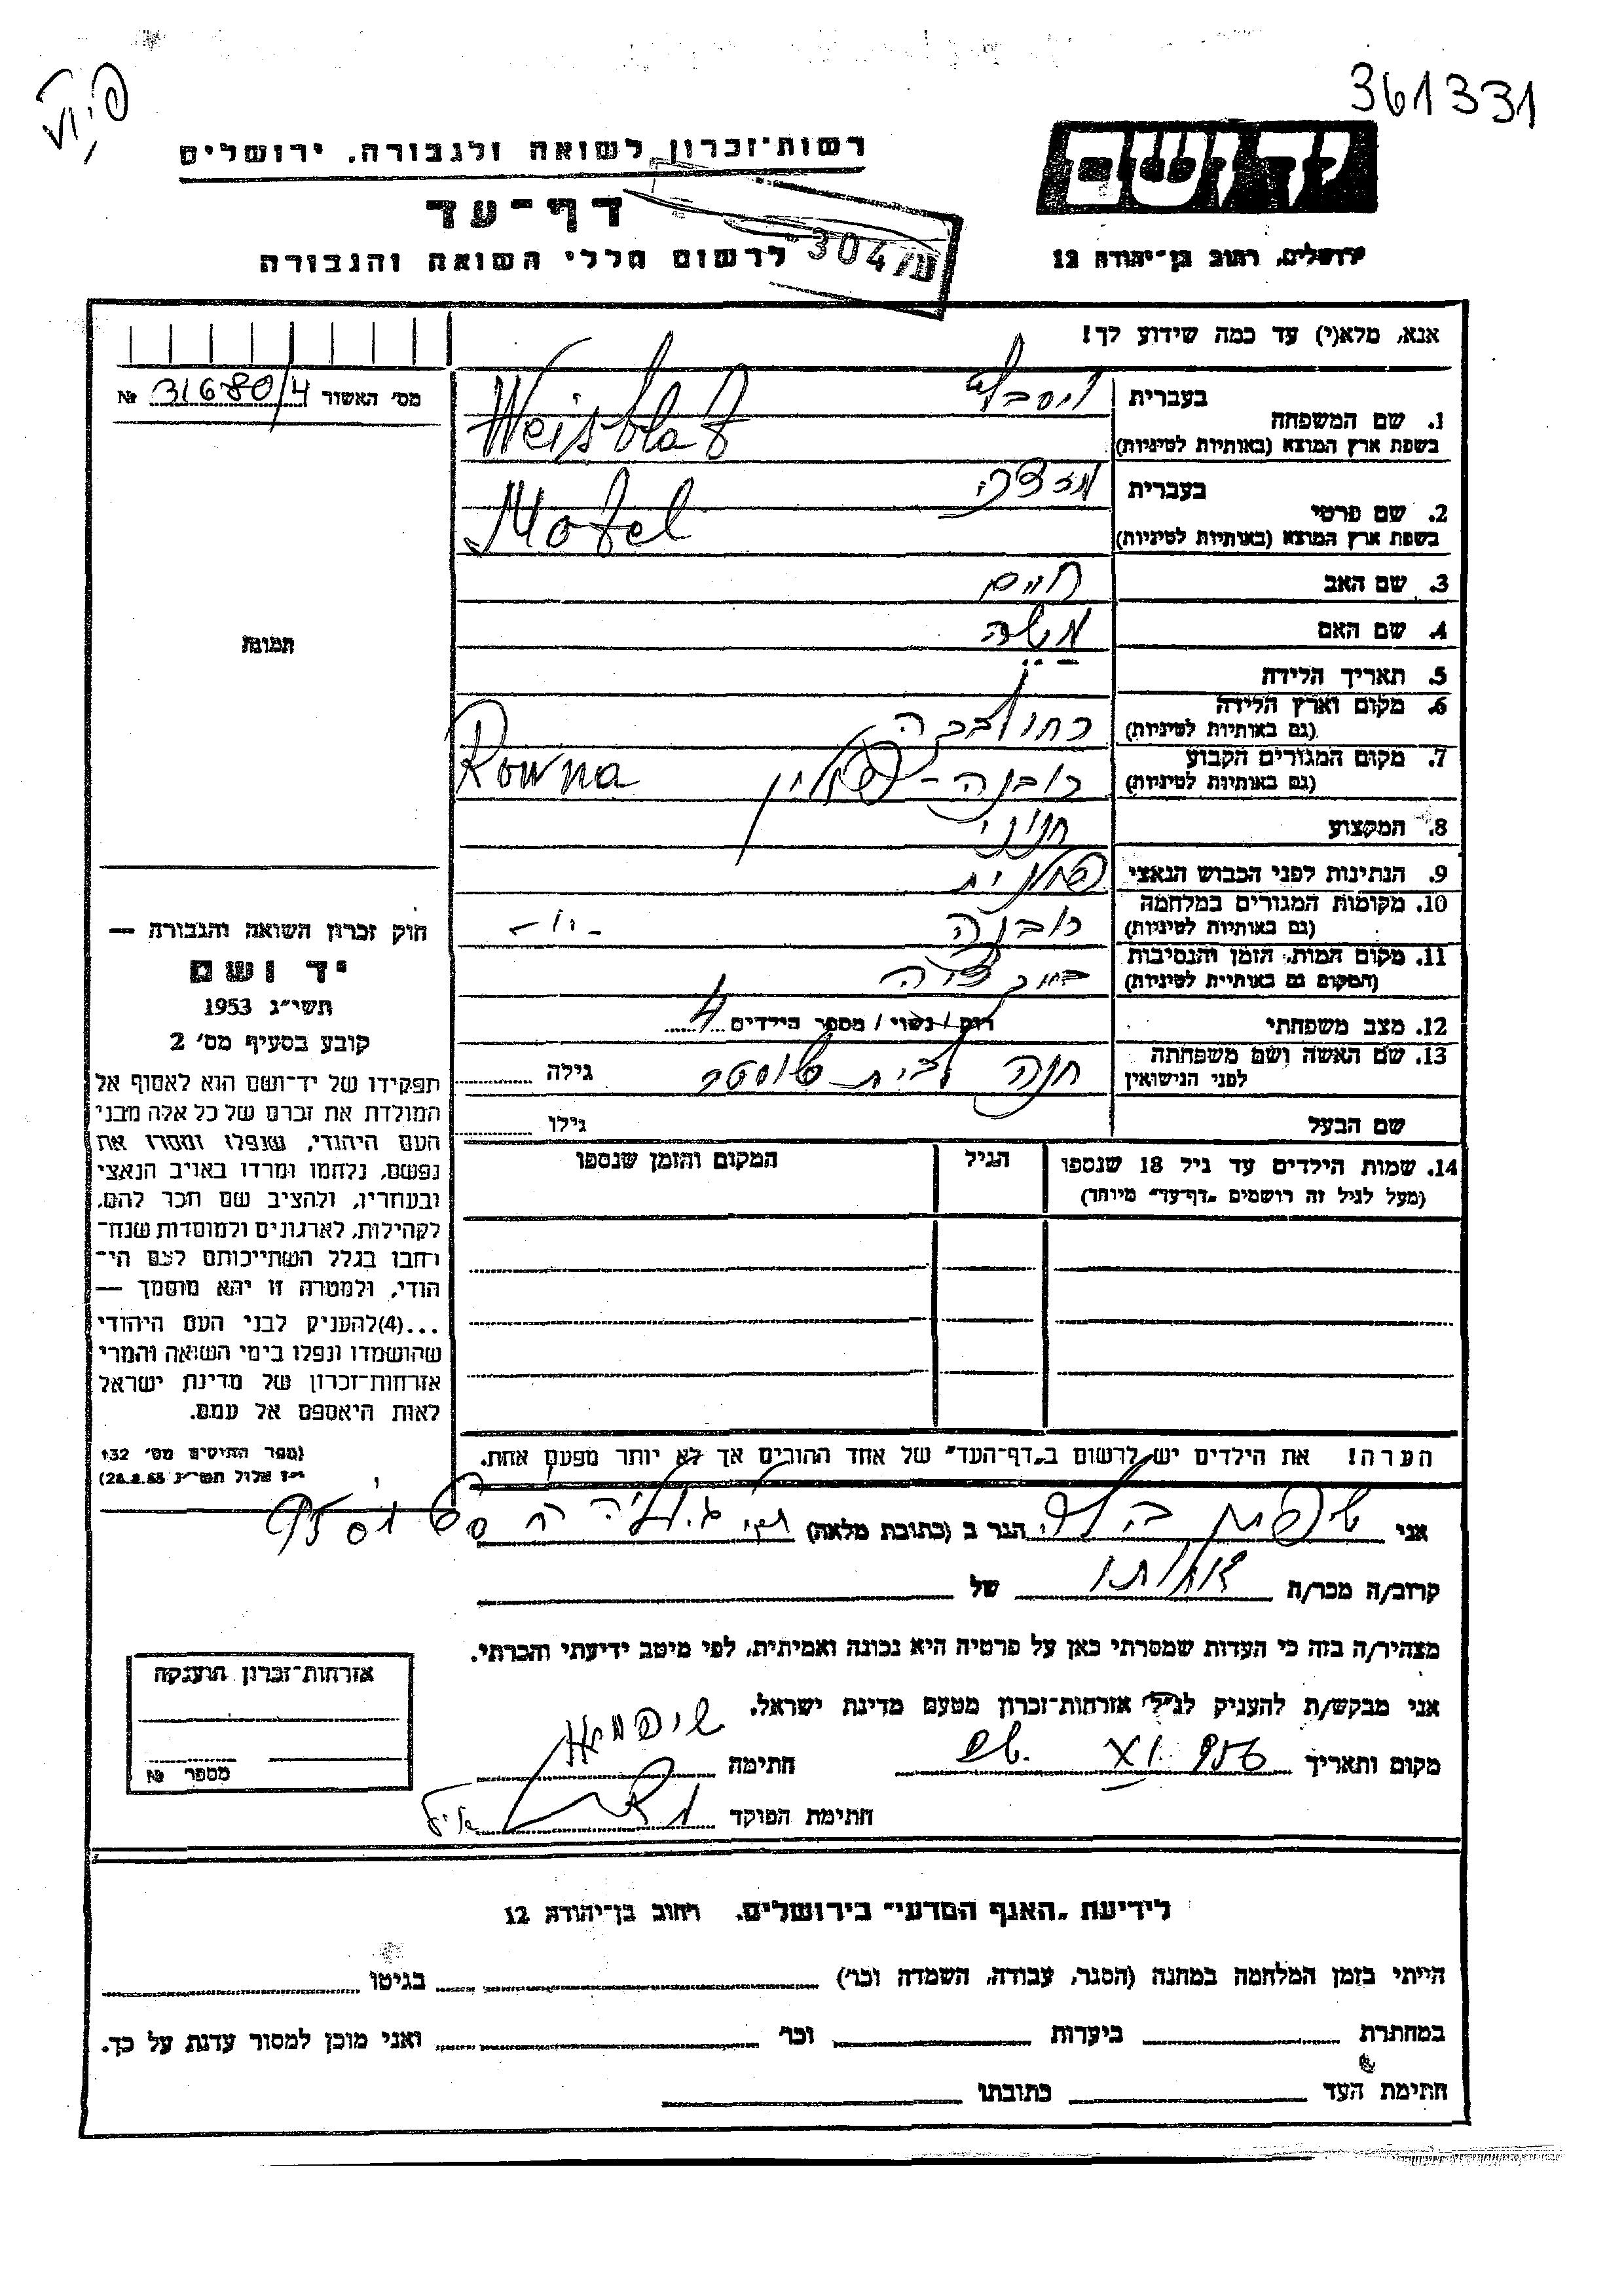 361331
רשות־זכרון לשואה ולגבורה, ירושלים
יד ושם
דף־עד
לרשום חללי השואה והגבורה
ירושלים, רחוב בן־יהודה 12
304/ע
אנא, מלא(י) עד כמה שידוע לך!
מס׳ האשור 31680/4 №
תמונה
1. שם המשפחה
בעברית
בשפת ארץ המוצא (באותיות לטיניות) Weisblat
2. שם פרטי
בעברית
בשפת ארץ המוצא (באותיות לטיניות) Motel
3. שם האב חיים
4. שם האם
5. תאריך הלידה
6. מקום וארץ הלידה
(גם באותיות לטיניות)
7. מקום המגורים הקבוע רובנה - פולין Rowna
(גם באותיות לטיניות)
8. המקצוע חנוני
9. הנתינות לפני הכבוש הנאצי פולנית
10. מקומות המגורים במלחמה רובנה -"-
(גם באותיות לטיניות)
11. מקום המות, הזמן והנסיבות
(המקום גם באותיית לטיניות)
12. מצב משפחתי רווק / נשוי / מספר הילדים 4
13. שם האשה ושם משפחתה חנה לבית שוסטר גילה
לפני הנישואין
שם הבעל גילו
14. שמות הילדים עד גיל 18 שנספו הגיל המקום והזמן שנספו
(מעל לגיל זה רושמים „דף־עד״ מיוחד)
חוק זכרון השואה והגבורה —
יד ושם
תשי״ג 1953
קובע בסעיף מס׳ 2
תפקידו של יד־ושם הוא לאסוף אל
המולדת את זכרם של כל אלה מבני
העם היהודי, שנפלו ומסרו את
נפשם, נלחמו ומרדו באויב הנאצי
ובעוזריו, ולהציב שם וזכר להם,
לקהילות, לארגונים ולמוסדות שנח־
רחבו בגלל השתייכותם לעם הי־
הודי, ולמטרה זו יהא מוסמך —
...(4)להעניק לבני העם היהודי
שהושמדו ונפלו בימי השואה והמרי
אזרחות־זכרון של מדינת ישראל
לאות היאספם אל עמם.
(ספר החוקים מס׳ 132
י״ז אלול תשי״ג 28.8.53)
הערה! את הילדים יש לרשום ב„דף־העד״ של אחד ההורים אך לא יותר מפעם אחת.
אני הגר ב (כתובת מלאה)
קרוב/ה מכר/ה של
מצהיר/ה בזה כי העדות שמסרתי כאן על פרטיה היא נכונה ואמיתית, לפי מיטב ידיעתי והכרתי.
אני מבקש/ת להעניק לנ״ל אזרחות־זכרון מטעם מדינת ישראל.
מקום ותאריך חתימה
חתימת הפוקד
אזרחות־זכרון הוענקה
מספר №
לידיעת „האגף המדעי״ בירושלים, רחוב בן־יהודה 12
הייתי בזמן המלחמה במחנה (הסגר, עבודה, השמדה וכו׳) בגיטו
במחתרת ביערות וכו׳ ואני מוכן למסור עדות על כך.
חתימת העד כתובתו